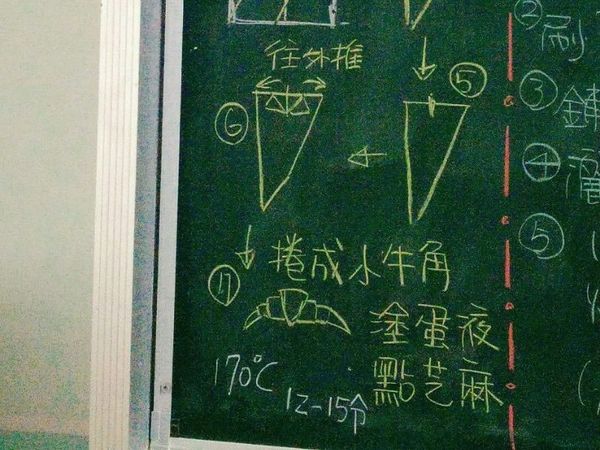 往外推
⑤
⑥
捲成小牛角
⑦
塗蛋液
點芝麻
170°C
12-15分
②刷
③鋪
④灑
⑤